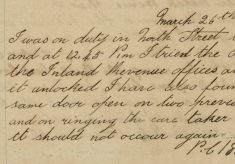 March 26th
I was on duty in North Street
and at 12.45 Pm I tried the
the Inland Revenue offices an
it unlocked I have also foun
same door open on two previ
and on ringing the care taker
it should not occur again
P.C 18